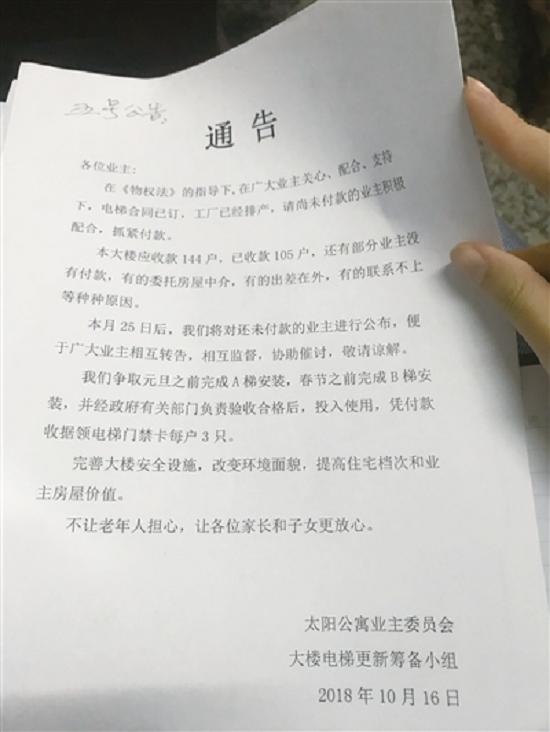 五号公告
通告
各位业主：
在《物权法》的指导下，在广大业主关心、配合、支持
下，电梯合同已订，工厂已经排产，请尚未付款的业主积极
配合，抓紧付款。
本大楼应收款 144 户，已收款 105 户，还有部分业主没
有付款，有的委托房屋中介，有的出差在外，有的联系不上
等种种原因。
本月 25 日后，我们将对还未付款的业主进行公布，便
于广大业主相互转告，相互监督，协助催讨，敬请谅解。
我们争取元旦之前完成 A 梯安装，春节之前完成 B 梯安
装，并经政府有关部门负责验收合格后，投入使用，凭付款
收据领电梯门禁卡每户 3 只。
完善大楼安全设施，改变环境面貌，提高住宅档次和业
主房屋价值。
不让老年人担心，让各位家长和子女更放心。
太阳公寓业主委员会
大楼电梯更新筹备小组
2018 年 10 月 16 日